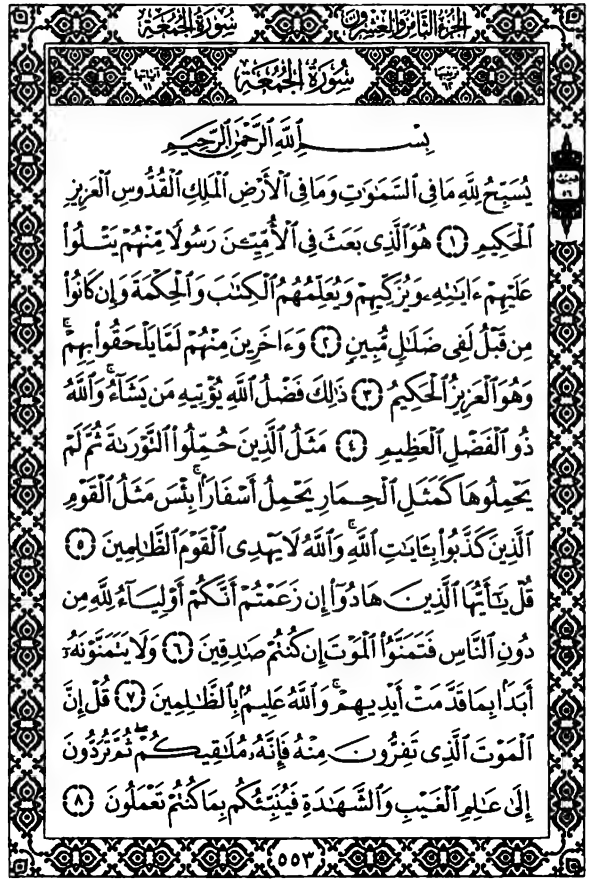 الجزء الثامن والعشرون سورة الجمعة
ترتيبها ٦٢ سورة الجمعة آياتها ١١
بِسْمِ ٱللَّهِ ٱلرَّحْمَٰنِ ٱلرَّحِيمِ
يُسَبِّحُ لِلَّهِ مَا فِى ٱلسَّمَٰوَٰتِ وَمَا فِى ٱلْأَرْضِ ٱلْمَلِكِ ٱلْقُدُّوسِ ٱلْعَزِيزِ
ٱلْحَكِيمِ ١ هُوَ ٱلَّذِى بَعَثَ فِى ٱلْأُمِّيِّـۧنَ رَسُولًا مِّنْهُمْ يَتْلُوا۟
عَلَيْهِمْ ءَايَٰتِهِۦ وَيُزَكِّيهِمْ وَيُعَلِّمُهُمُ ٱلْكِتَٰبَ وَٱلْحِكْمَةَ وَإِن كَانُوا۟
مِن قَبْلُ لَفِى ضَلَٰلٍ مُّبِينٍ ٢ وَءَاخَرِينَ مِنْهُمْ لَمَّا يَلْحَقُوا۟ بِهِمْ ۚ
وَهُوَ ٱلْعَزِيزُ ٱلْحَكِيمُ ٣ ذَٰلِكَ فَضْلُ ٱللَّهِ يُؤْتِيهِ مَن يَشَآءُ ۚ وَٱللَّهُ
ذُو ٱلْفَضْلِ ٱلْعَظِيمِ ٤ مَثَلُ ٱلَّذِينَ حُمِّلُوا۟ ٱلتَّوْرَىٰةَ ثُمَّ لَمْ
يَحْمِلُوهَا كَمَثَلِ ٱلْحِمَارِ يَحْمِلُ أَسْفَارًۢا ۚ بِئْسَ مَثَلُ ٱلْقَوْمِ
ٱلَّذِينَ كَذَّبُوا۟ بِـَٔايَٰتِ ٱللَّهِ ۚ وَٱللَّهُ لَا يَهْدِى ٱلْقَوْمَ ٱلظَّٰلِمِينَ ٥
قُلْ يَٰٓأَيُّهَا ٱلَّذِينَ هَادُوٓا۟ إِن زَعَمْتُمْ أَنَّكُمْ أَوْلِيَآءُ لِلَّهِ مِن
دُونِ ٱلنَّاسِ فَتَمَنَّوُا۟ ٱلْمَوْتَ إِن كُنتُمْ صَٰدِقِينَ ٦ وَلَا يَتَمَنَّوْنَهُۥٓ
أَبَدًۢا بِمَا قَدَّمَتْ أَيْدِيهِمْ ۚ وَٱللَّهُ عَلِيمٌۢ بِٱلظَّٰلِمِينَ ٧ قُلْ إِنَّ
ٱلْمَوْتَ ٱلَّذِى تَفِرُّونَ مِنْهُ فَإِنَّهُۥ مُلَٰقِيكُمْ ۖ ثُمَّ تُرَدُّونَ
إِلَىٰ عَٰلِمِ ٱلْغَيْبِ وَٱلشَّهَٰدَةِ فَيُنَبِّئُكُم بِمَا كُنتُمْ تَعْمَلُونَ ٨
٥٥٣